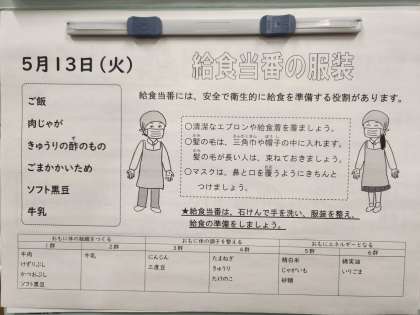 5月13日(火)
給食当番の服装
ご飯
肉じゃが
きゅうりの酢のもの
ごまかかいため
ソフト黒豆
牛乳
給食当番には、安全で衛生的に給食を準備する役割があります。
○清潔なエプロンや給食着を着ましょう。
○髪の毛は、三角巾や帽子の中に入れます。
髪の毛が長い人は、束ねておきましょう。
○マスクは、鼻と口を覆うようにきちんと
つけましょう。
★給食当番は、石けんで手を洗い、服装を整え、
給食の準備をしましょう。
おもに体の組織をつくる おもに体の調子を整える おもにエネルギーとなる
1群 2群 3群 4群 5群 6群
牛肉 牛乳 にんじん たまねぎ 精白米 綿実油
けずりぶし 三度豆 きゅうり じゃがいも いりごま
かつおぶし たけのこ 砂糖
ソフト黒豆